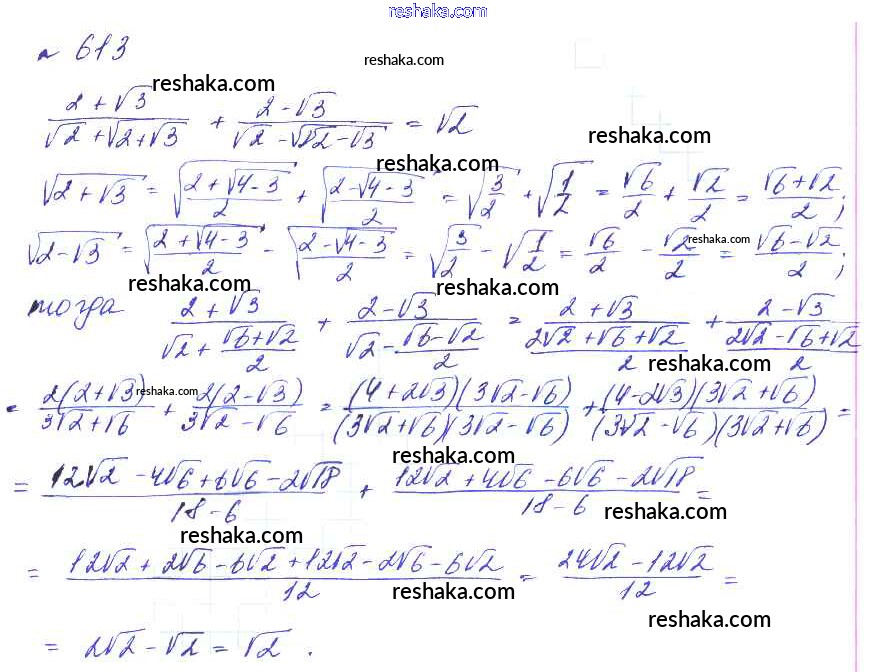 reshaka.com
№ 613
reshaka.com
reshaka.com
(2+√3)/(√2+√(2+√3)) + (2-√3)/(√2-√(2-√3)) = √2
reshaka.com
reshaka.com
√(2+√3) = √((2+√(4-3))/2) + √((2-√(4-3))/2) = √(3/2) + √(1/2) = √6/2 + √2/2 = (√6+√2)/2;
√(2-√3) = √((2+√(4-3))/2) - √((2-√(4-3))/2) = √(3/2) - √(1/2) = √6/2 - √2/2 = (√6-√2)/2;
reshaka.com
reshaka.com
reshaka.com
тогда (2+√3)/(√2+(√6+√2)/2) + (2-√3)/(√2-(√6-√2)/2) = (2+√3)/((2√2+√6+√2)/2) + (2-√3)/((2√2-√6+√2)/2)
reshaka.com
= 2(2+√3)/(3√2+√6) + 2(2-√3)/(3√2-√6) = (4+2√3)(3√2-√6)/((3√2+√6)(3√2-√6)) + (4-2√3)(3√2+√6)/((3√2-√6)(3√2+√6)) =
reshaka.com
reshaka.com
= (12√2-4√6+6√6-2√18)/(18-6) + (12√2+4√6-6√6-2√18)/(18-6) =
reshaka.com
reshaka.com
= (12√2+2√6-6√2+12√2-2√6-6√2)/12 = (24√2-12√2)/12 =
reshaka.com
reshaka.com
= 2√2-√2=√2.